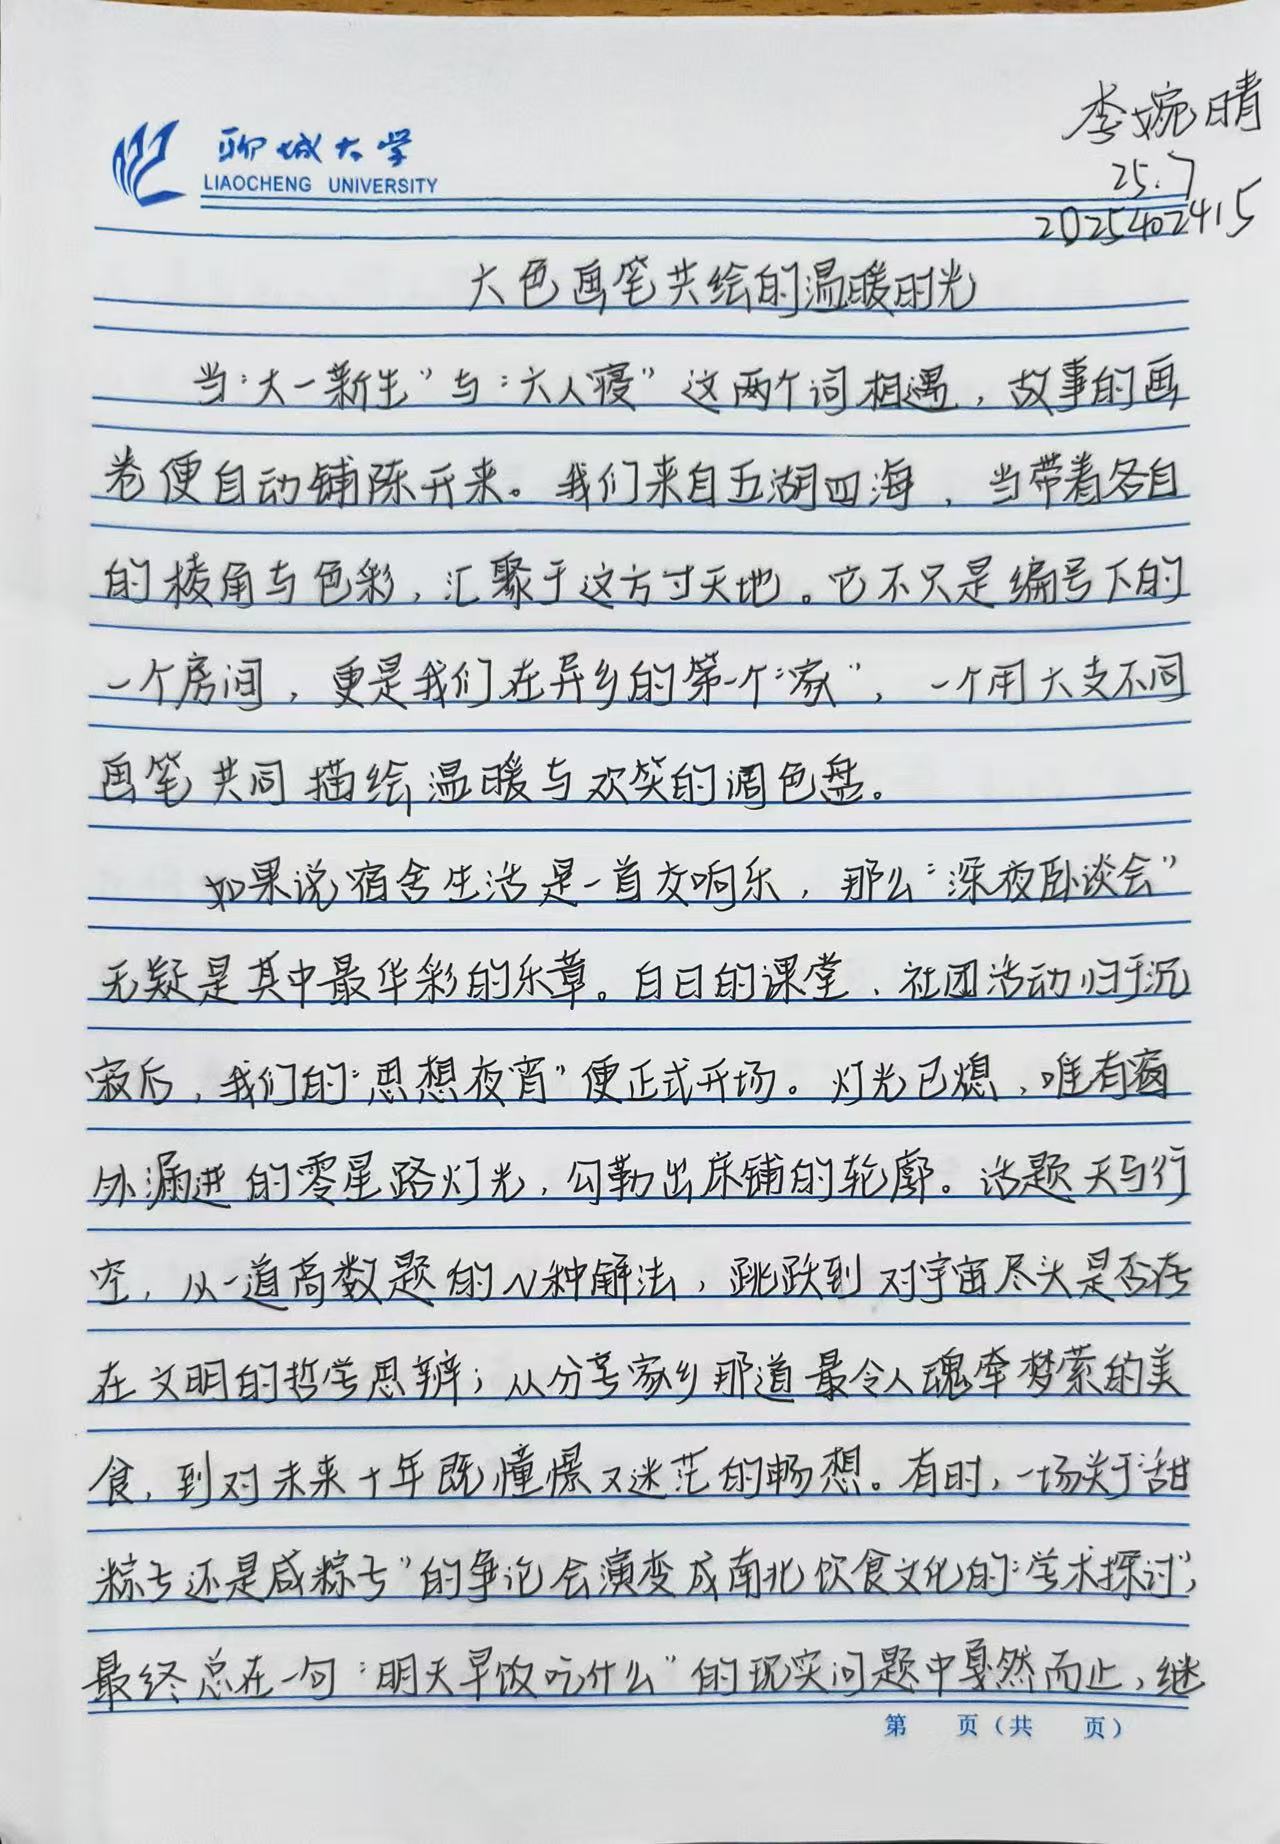 聊城大学
LIAOCHENG UNIVERSITY
李婉晴
25.7
2025402415
六色画笔共绘的温暖时光
当“大一新生”与“六人寝”这两个词相遇，故事的画
卷便自动铺陈开来。我们来自五湖四海，当带着各自
的棱角与色彩，汇聚于这方寸天地。它不只是编号下的
一个房间，更是我们在异乡的第一个“家”，一个用六支不同
画笔共同描绘温暖与欢笑的调色盘。
如果说宿舍生活是一首交响乐，那么“深夜卧谈会”
无疑是其中最华彩的乐章。白日的课堂、社团活动归于沉
寂后，我们的“思想夜宵”便正式开场。灯光已熄，唯有窗
外漏进的零星路灯光，勾勒出床铺的轮廓。话题天马行
空，从一道高数题的N种解法，跳跃到对宇宙尽头是否存
在文明的哲学思辨；从分享家乡那道最令人魂牵梦萦的美
食，到对未来十年既憧憬又迷茫的畅想。有时，一场关于“甜
粽子还是咸粽子”的争论会演变成南北饮食文化的“学术探讨”，
最终总在一句“明天早饭吃什么”的现实问题中戛然而止，继
第 页（共 页）